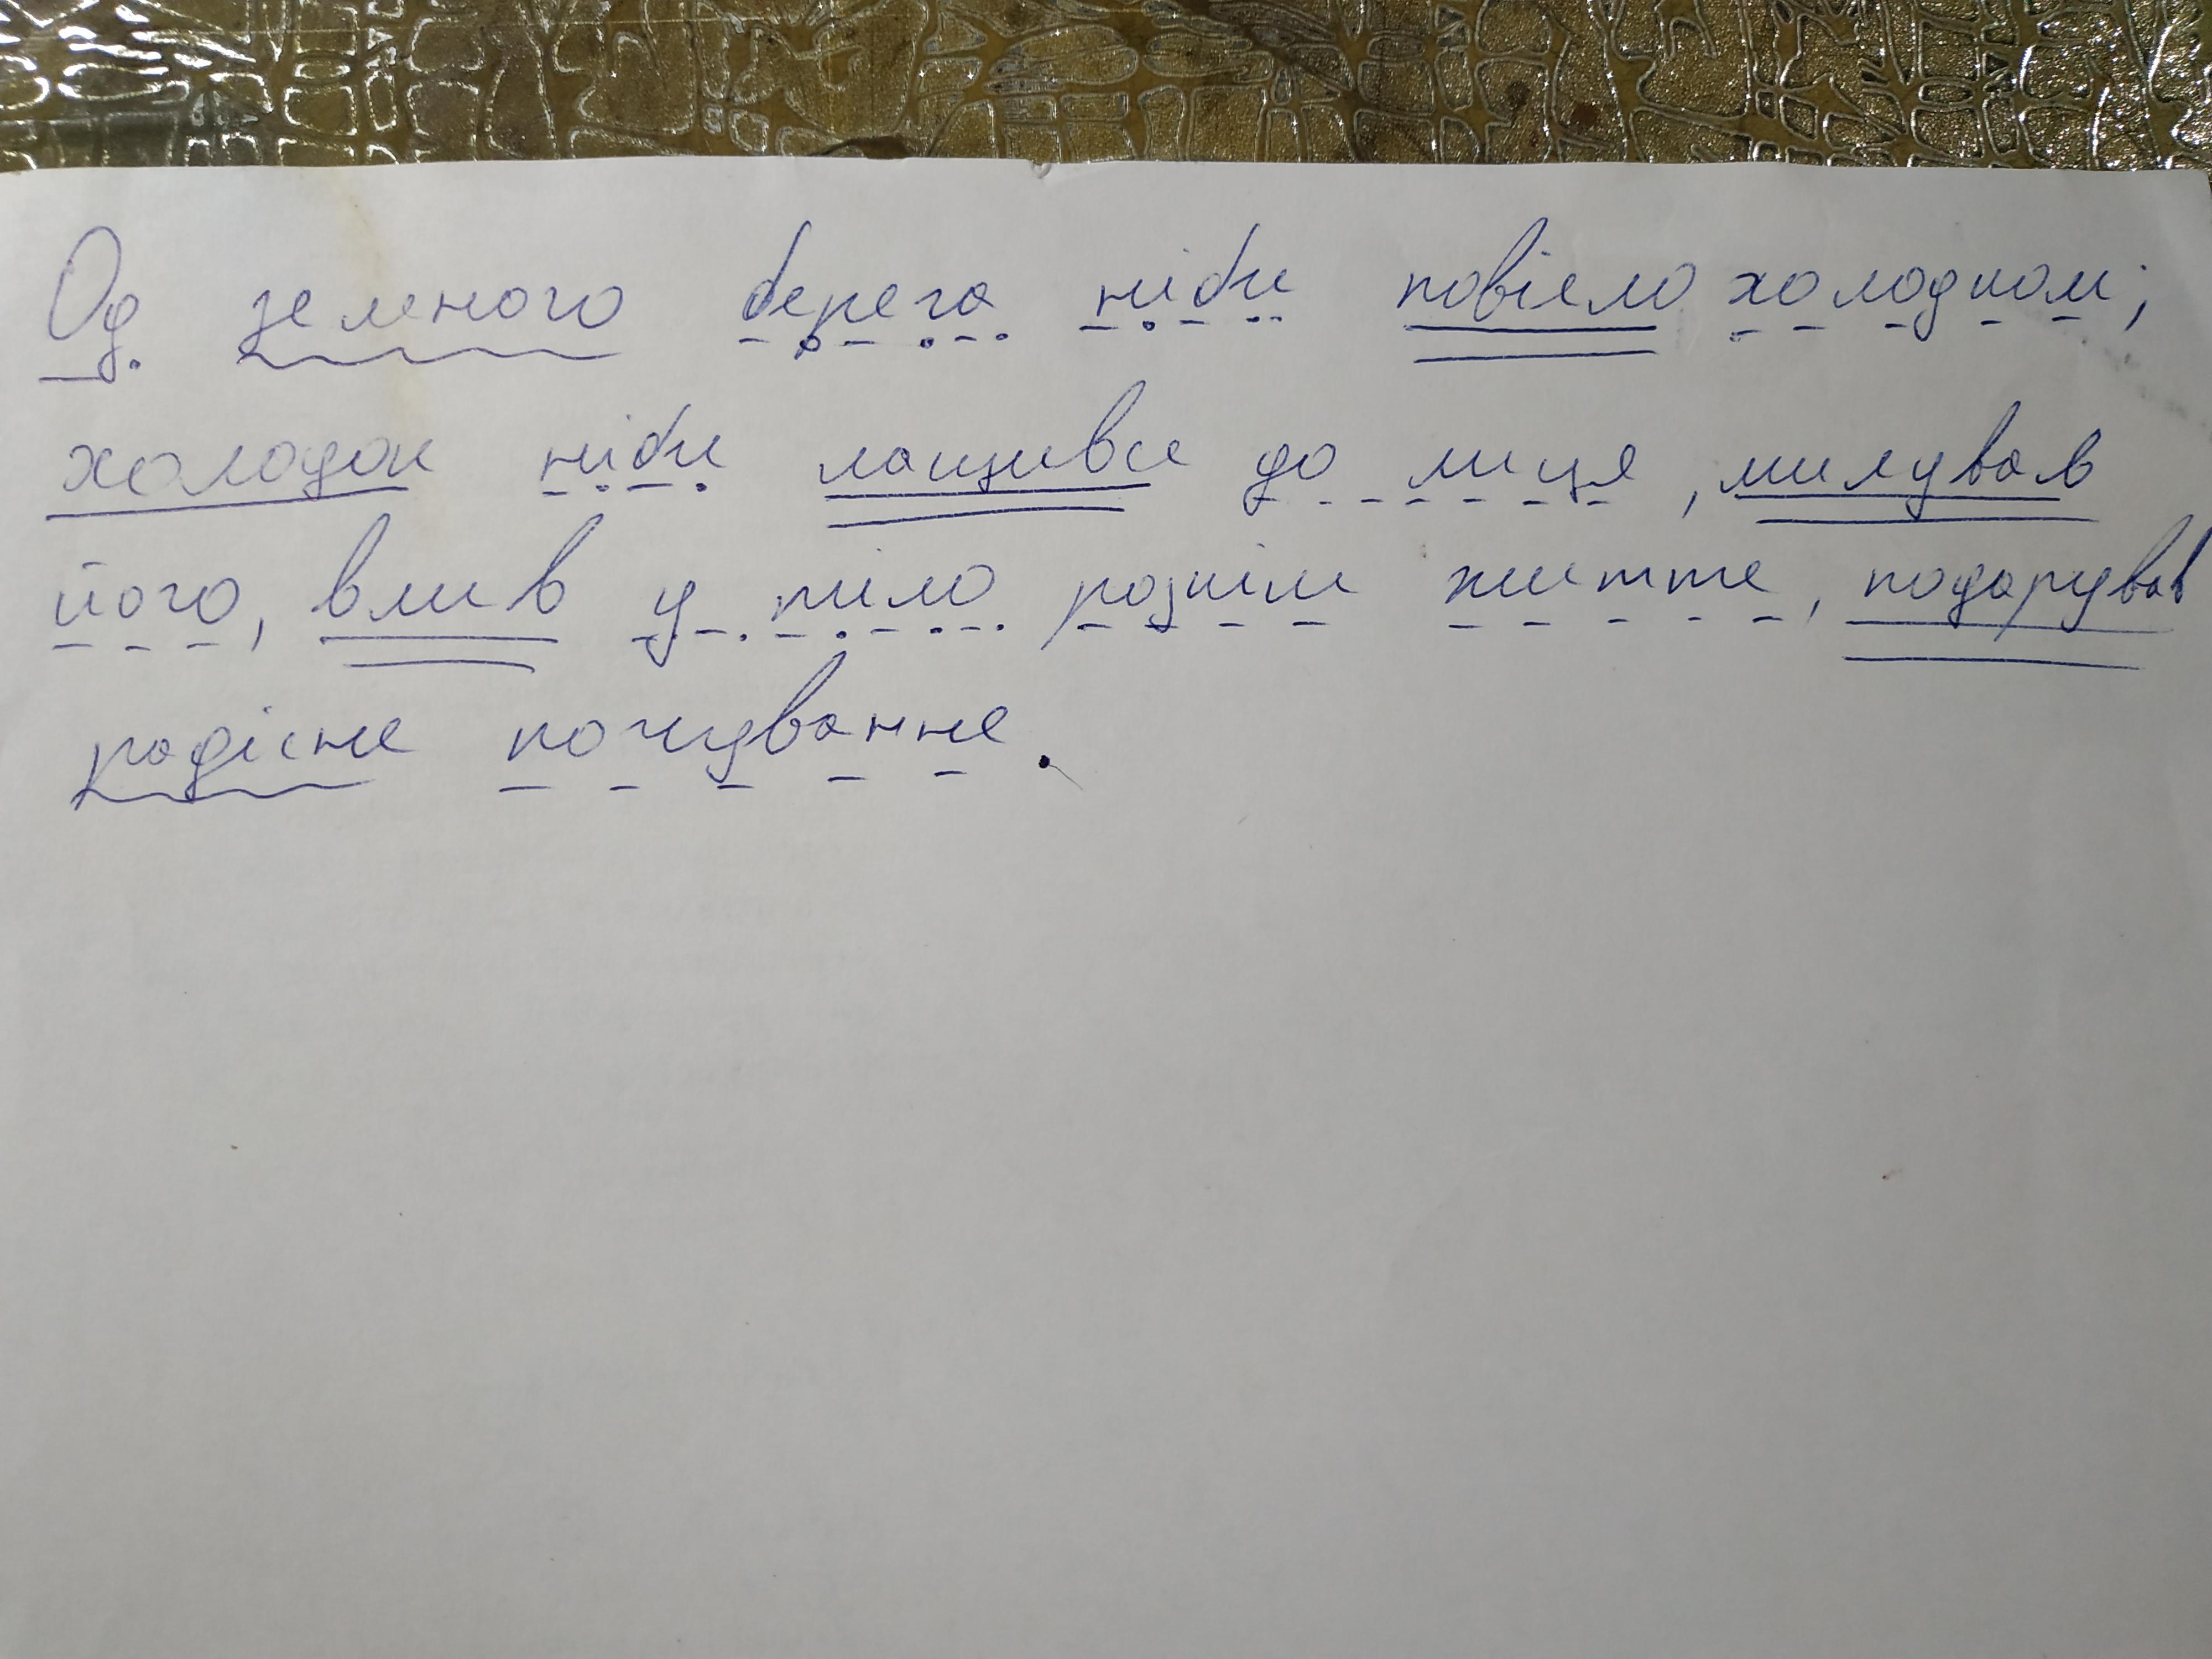 Од зеленого берега ніби повіяло холодком;
холодок ніби лащився до лиця, милував
його, влив у тіло розкіш життя, подарував
радісне почування.